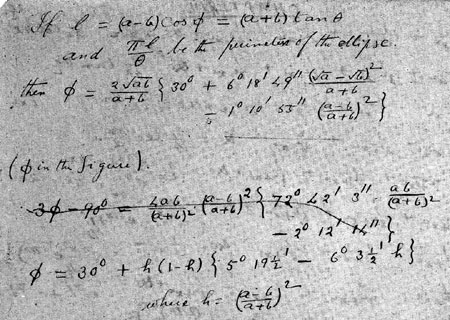 If l = (a-b) cos φ = (a+b) tan θ
and πl/θ be the perimeter of the ellipse.
then φ = 2√ab/(a+b) { 30° + 6° 18' 49'' (√a - √b)²/(a+b)
- 1° 10' 55'' ((a-b)/(a+b))² }
(φ in the figure).
3φ - 90° = 4ab/(a+b)² ((a-b)/(a+b))² { 72° 42' 3'' · ab/(a+b)²
- 2° 12' 14'' }
φ = 30° + h(1-h) { 5° 19½' - 6° 3½' h }
where h = ((a-b)/(a+b))²